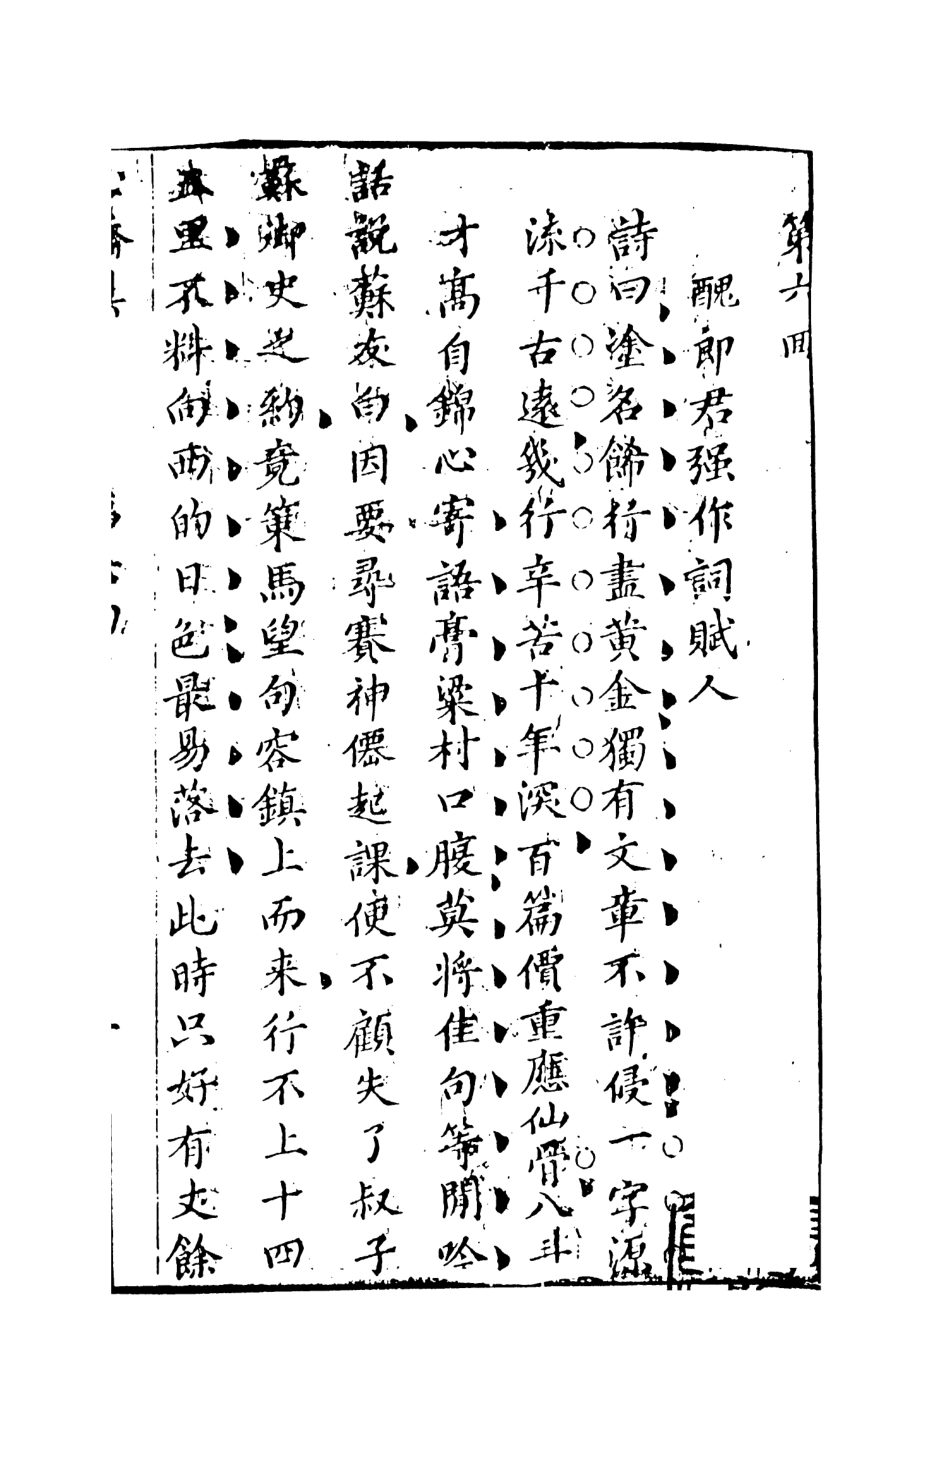 第六回
醜郎君强作詞賦人
詩曰塗名飾行盡黄金獨有文章不許侵一字源
流千古遠幾行辛苦十年深百篇價重應仙骨八斗
才高自錦心寄語膏粱村口腹莫將佳句等閒吟
話說蘇友白因要尋賽神僊起課便不顧失了叔子
蘇御史之約竟策馬望句容鎮上而来行不上十四
五里不料向西的日色最易落去此時只好有丈餘